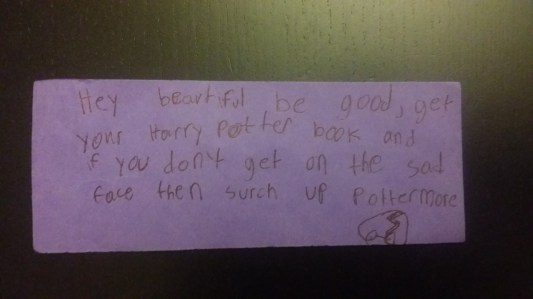 Hey beartiful be good, get
your Harry Potter book and
if you don't get on the sad
face then surch up Pottermore